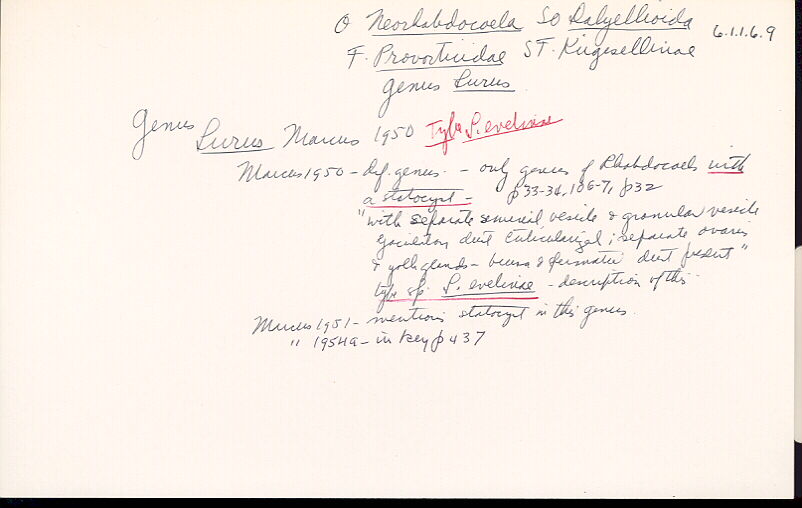 O Neorhabdocoela SO Dalyellioida 6.1.1.6.9
F. Provorticidae ST. Kirgisellinae
genus Lurus
Genus Lurus Marcus 1950 Type L. evelinae
Marcus 1950 - def. genus. - only genus of Rhabdocoels with
a statocyst - p33-34, 106-7, p32
"with separate seminal vesicle & granular vesicle
ejaculatory duct cuticularized; separate ovaries
& yolk glands - bursa & spermatic duct present"
type sp. L. evelinae - description of this.
Marcus 1951 - mentions statocyst in this genus.
" 1954a - in key p 437